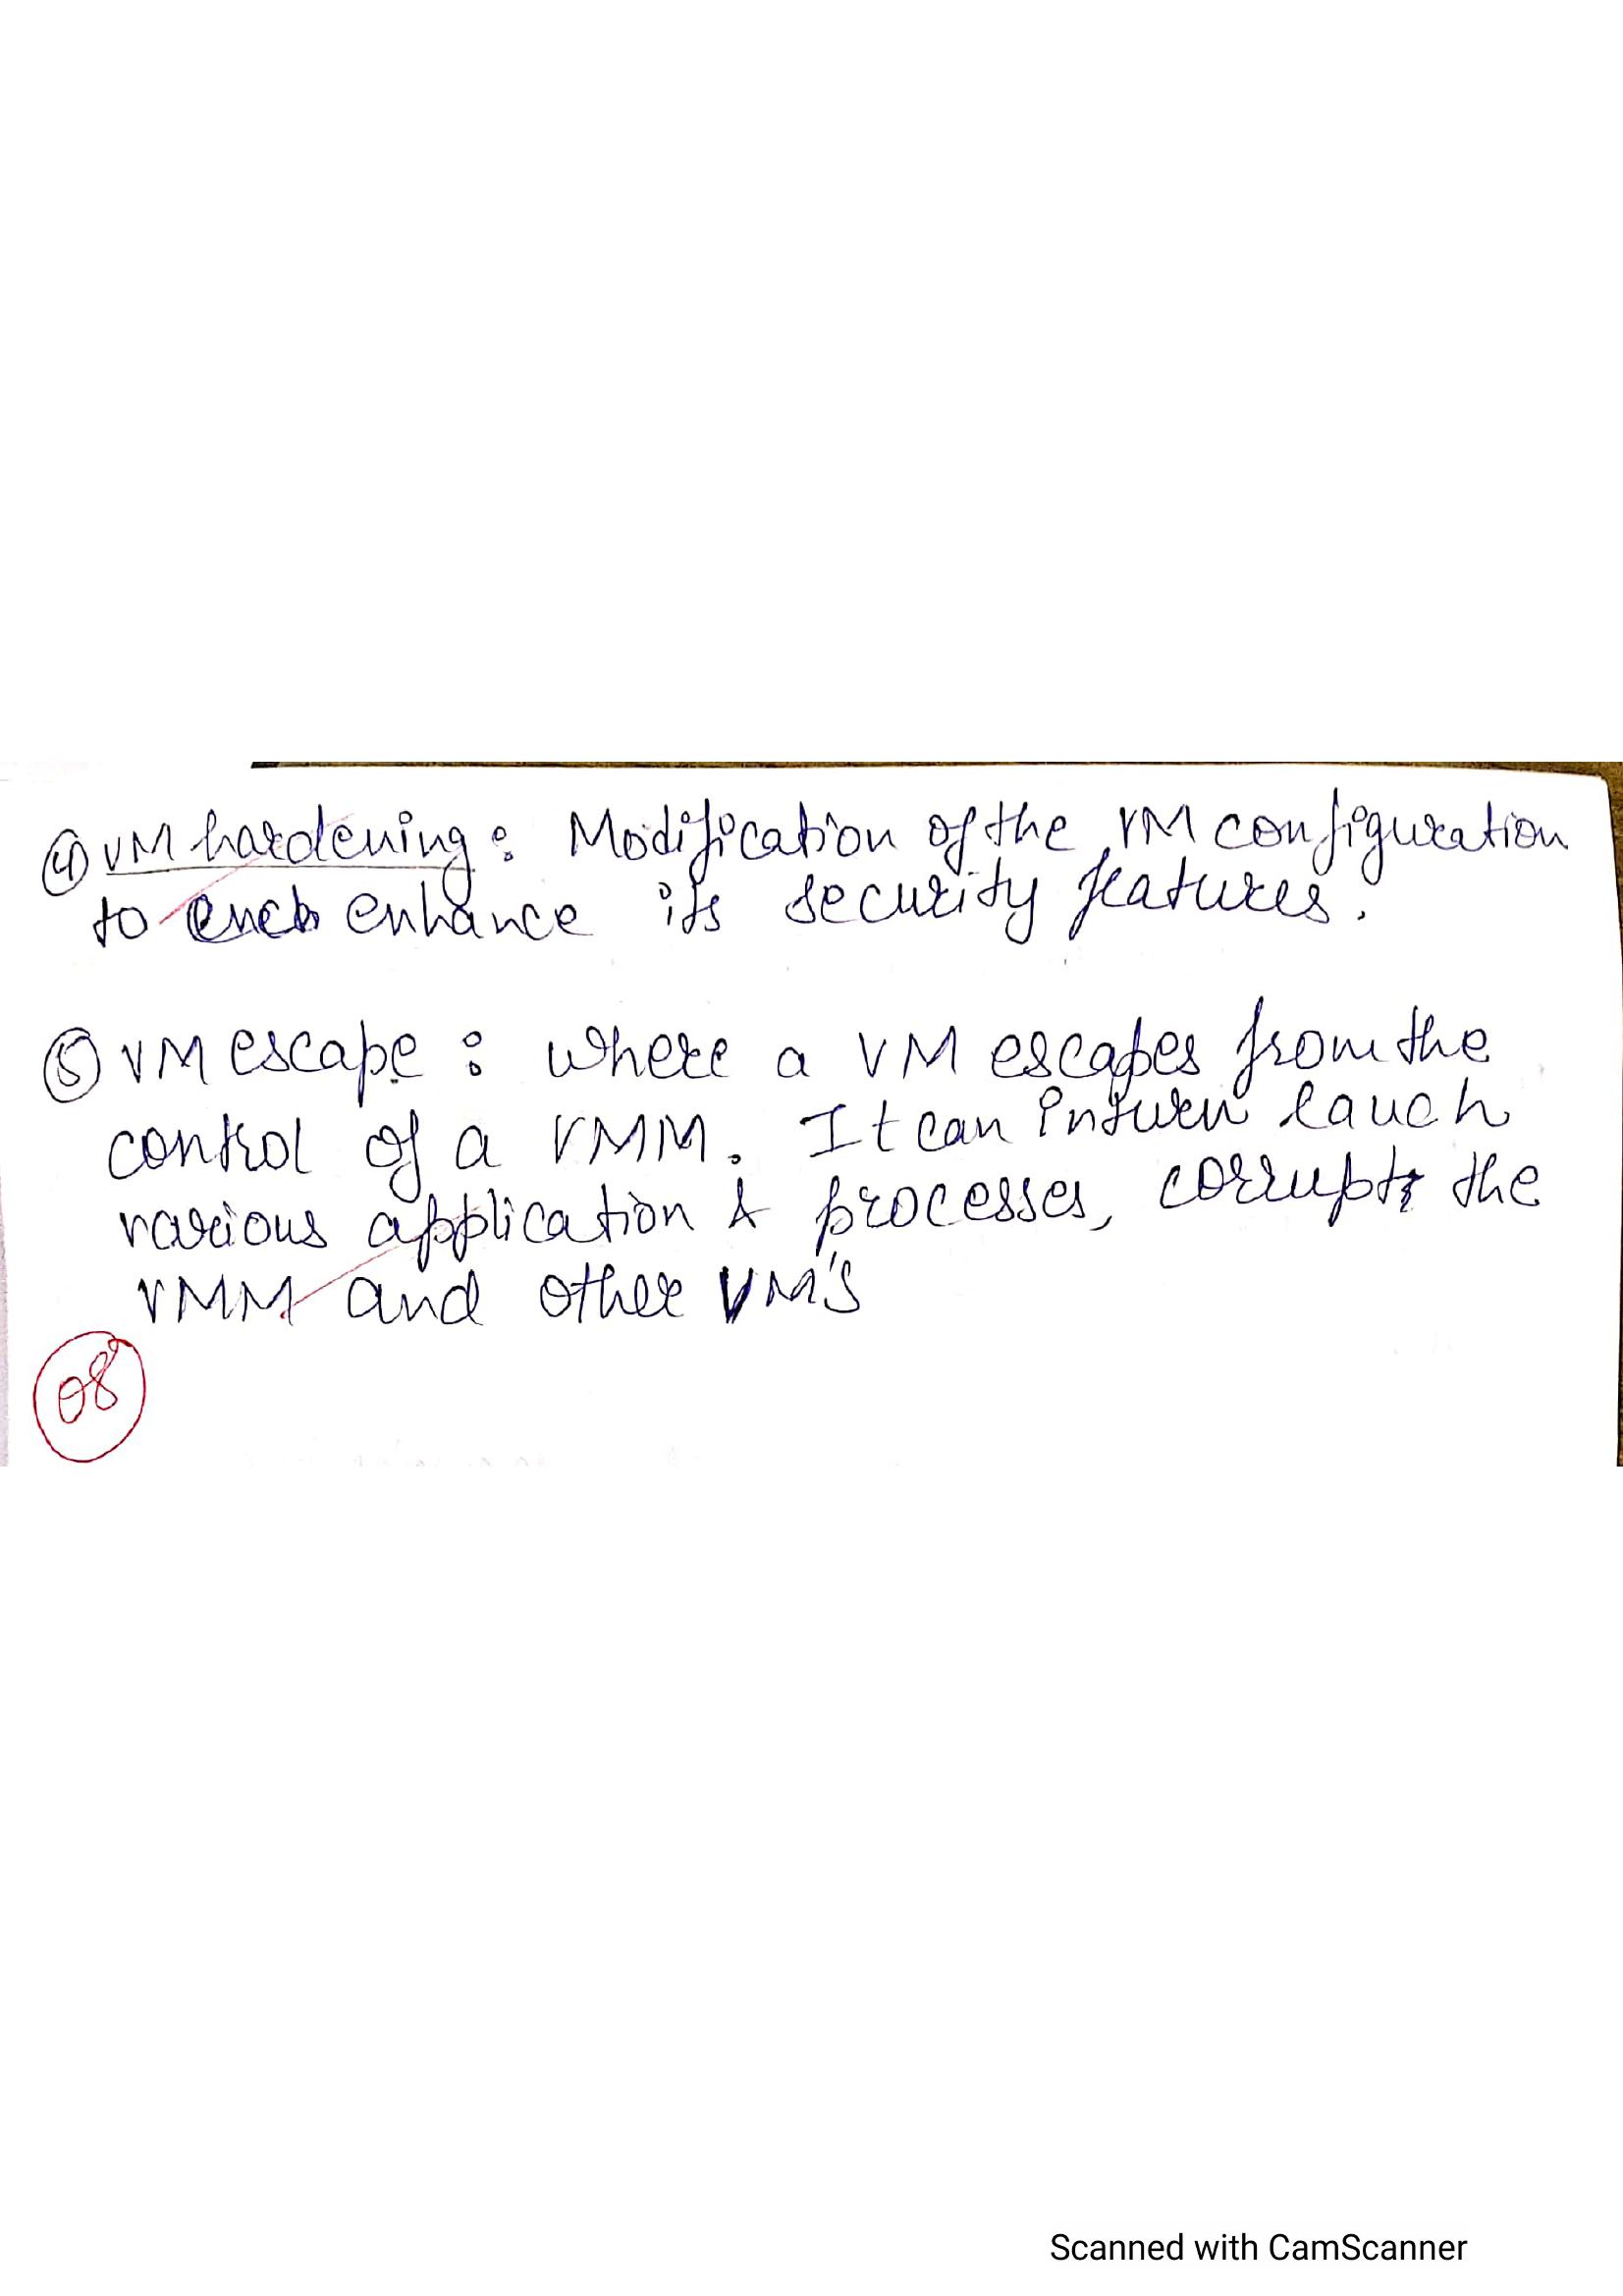 ④ VM hardening : Modification of the VM configuration
to enhance its security features.
⑤ VM escape : where a VM escapes from the
control of a VMM. It can inturn lauch
various application & processes, corrupt the
VMM and other VM's
08
Scanned with CamScanner